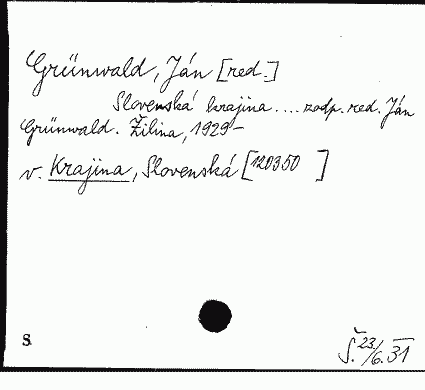 Grünwald, Ján [red.]
Slovenská krajina .... zodp. red. Ján
Grünwald. Žilina, 1929-
v. Krajina, Slovenská [120350 ]
S.
Š. 23/6. 31